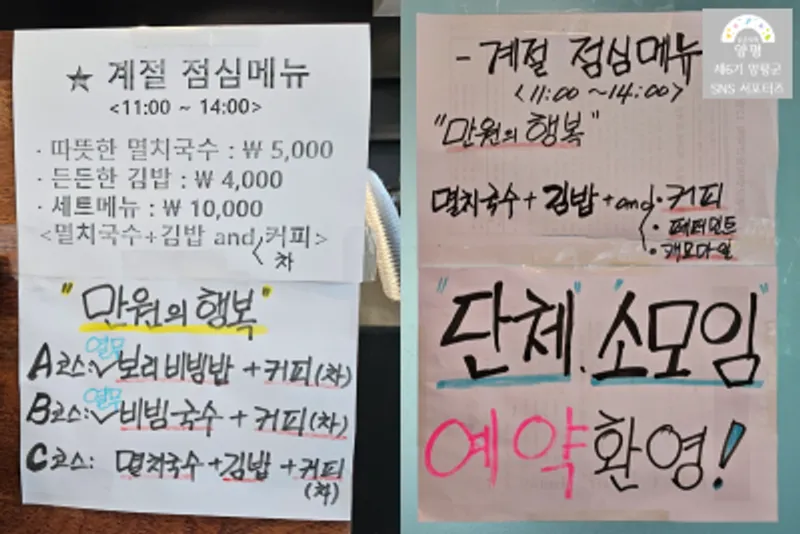 ★ 계절 점심메뉴
<11:00 ~ 14:00>
· 따뜻한 멸치국수 : ₩ 5,000
· 든든한 김밥 : ₩ 4,000
· 세트메뉴 : ₩ 10,000
<멸치국수+김밥 and 커피>
차
"만원의 행복"
A코스: 열무 보리비빔밥 + 커피(차)
B코스: 열무 비빔국수 + 커피(차)
C코스: 멸치국수 + 김밥 + 커피
(차)
- 계절 점심메뉴
<11:00 ~ 14:00>
"만원의 행복"
멸치국수 + 김밥 + and · 커피
· 페퍼민트
· 캐모마일
"단체", "소모임"
예약 환영!
양평
제6기 양평군
SNS 서포터즈